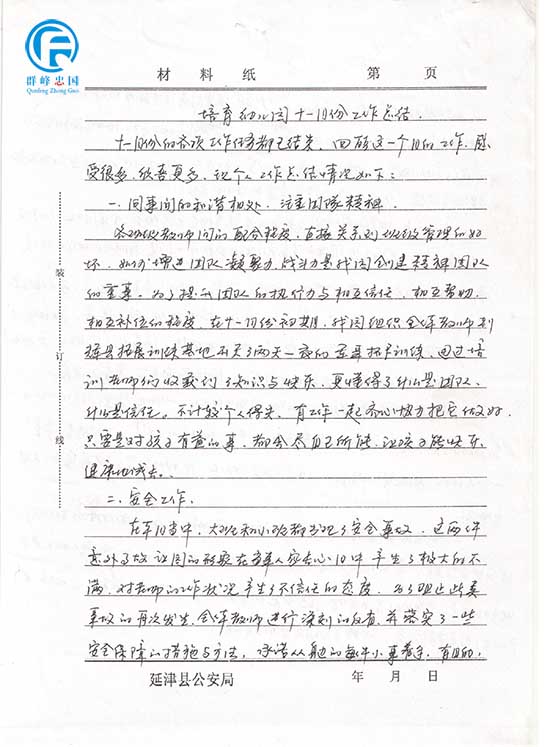 群峰忠国
Qunfeng Zhong Guo
材 料 纸 第 页
培育幼儿园十一月份工作总结.
十一月份的各项工作任务都已结束, 回顾这一个月的工作, 感
受很多, 欣喜更多, 现个人工作总结情况如下:
一. 同事间的和谐相处, 注重团队精神.
各班级教师间的配合程度, 直接关系到班级管理的好
坏, 如何增进团队凝聚力, 战斗力是我园创建精神团队
的重点. 为了提升团队的执行力与相互信任, 相互帮助,
相互补位的程度, 在十一月份初期, 我园组织全体教师到
县拓展训练基地 了两天一夜的 训练, 通过培
训老师们收获了知识与快乐, 更懂得了什么是团队,
什么是信任. 不计较个人得失, 有工作一起齐心协力把它做好.
只要是对孩子有益的事, 都会尽自己所能, 让孩子能快乐,
健康地成长.
二. 安全工作.
在本月当中, 大班和小班都出现了安全事故, 这两件
意外事故让园的形象在家长心目中产生了极大的不
满, 对老师的工作状况产生了不信任的态度. 为了阻止此类
事故的再次发生, 全体教师进行深刻的反省, 并落实了一些
安全保障的措施与方法, 承诺从身边的每件小事着手, 有目的,
装
订
线
延津县公安局 年 月 日